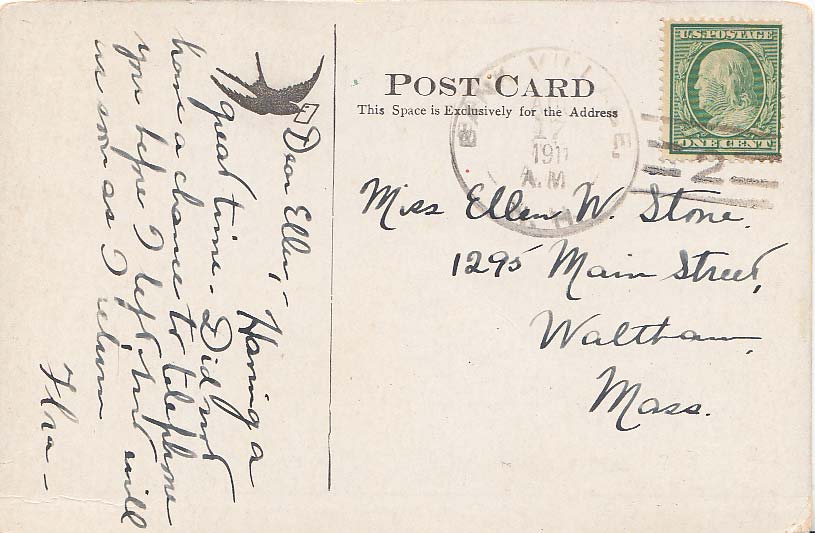 POST CARD
This Space is Exclusively for the Address
U.S. POSTAGE
ONE CENT
17
1911
A.M.
N.H.
2
Miss Ellen W. Stone.
1295 Main Street,
Waltham,
Mass.
Dear Ellen,- Having a
great time - Did not
have a chance to telephone
you before I left, but will
as soon as I return
Flora -